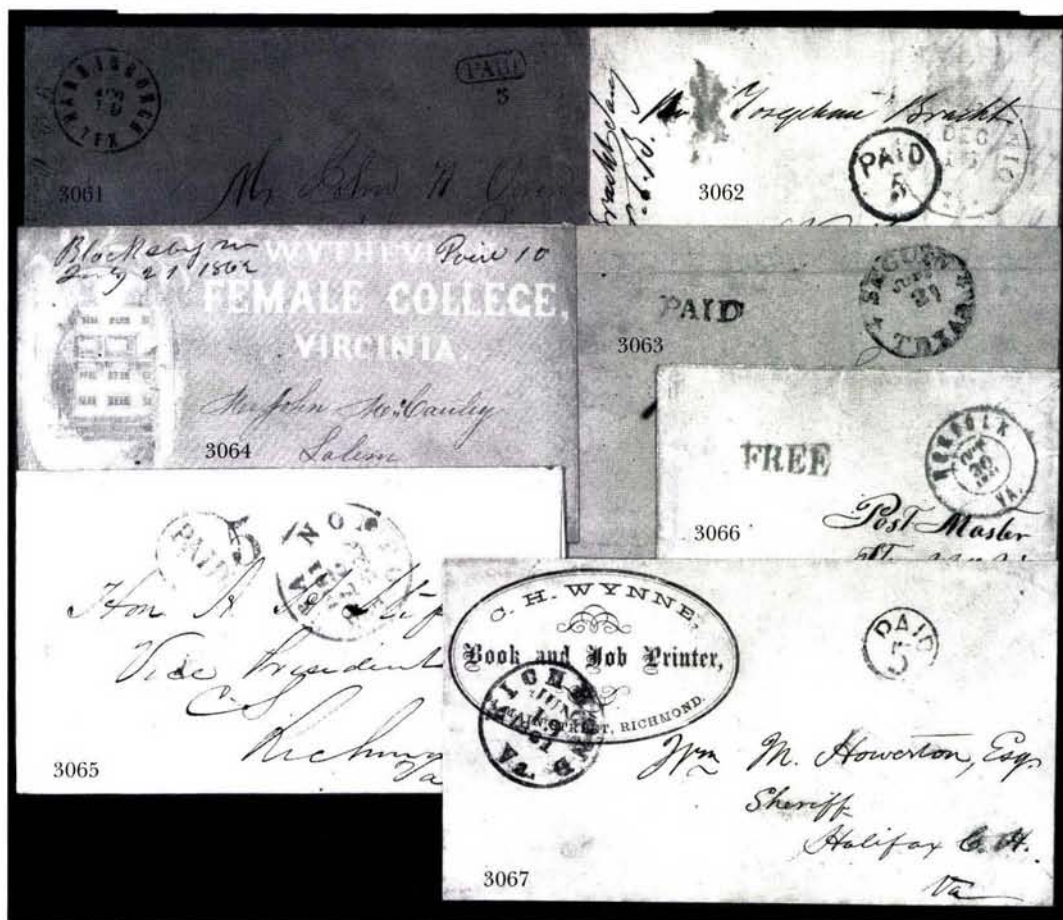 HARRISBURGH
TEX
PAID
5
Mr John
3061
Josephine Bracht
DEC
PAID
5
3062
Blacksburg
July 21 1862
Paid 10
WYTHEVI
FEMALE COLLEGE,
VIRGINIA
Mr John McCauley
Salem
3064
PAID
SEGUIN
21
TEXAS
3063
FREE
NORFOLK
30
VA.
Post Master
3066
PAID
5
NOR
VA
Hon A H Step
Vice President
C S
Richm
Va
3065
C. H. WYNNE,
Book and Job Printer,
MAIN STREET, RICHMOND.
RICHMOND
JUN
1861
VA.
PAID
5
Wm M. Howerton, Esq.
Sheriff
Halifax C. H.
Va
3067